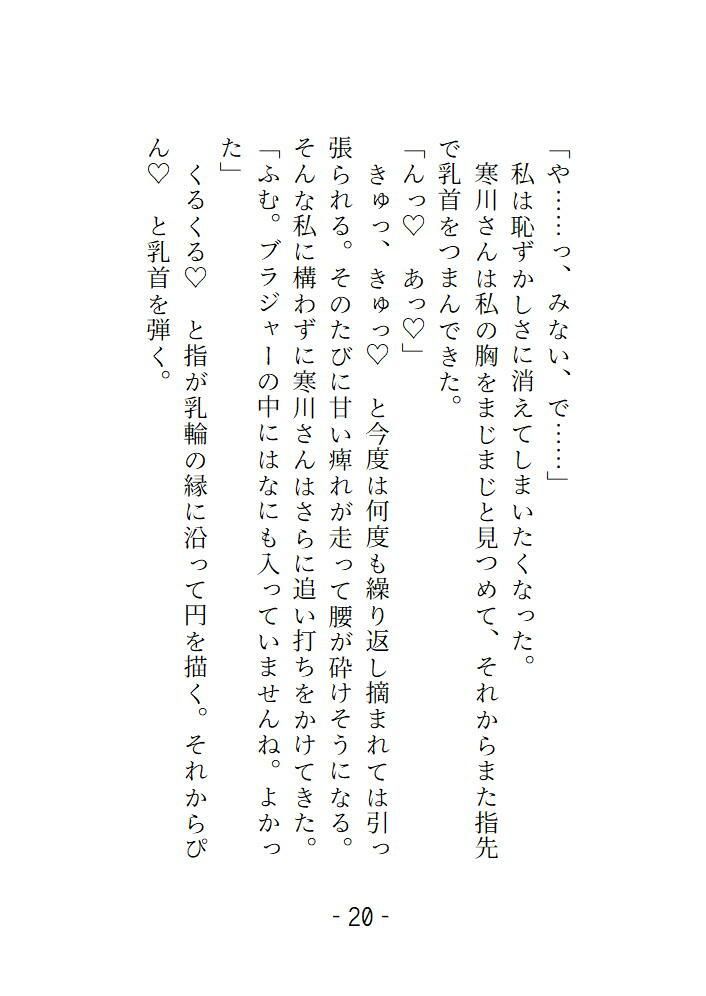 「や……っ、みない、で……」
私は恥ずかしさに消えてしまいたくなった。
寒川さんは私の胸をまじまじと見つめて、それからまた指先
で乳首をつまんできた。
「んっ♡　あっ♡」
きゅっ、きゅっ♡　と今度は何度も繰り返し摘まれては引っ
張られる。そのたびに甘い痺れが走って腰が砕けそうになる。
そんな私に構わずに寒川さんはさらに追い打ちをかけてきた。
「ふむ。ブラジャーの中にはなにも入っていませんね。よかっ
た」
くるくる♡　と指が乳輪の縁に沿って円を描く。それからぴ
ん♡　と乳首を弾く。
- 20 -